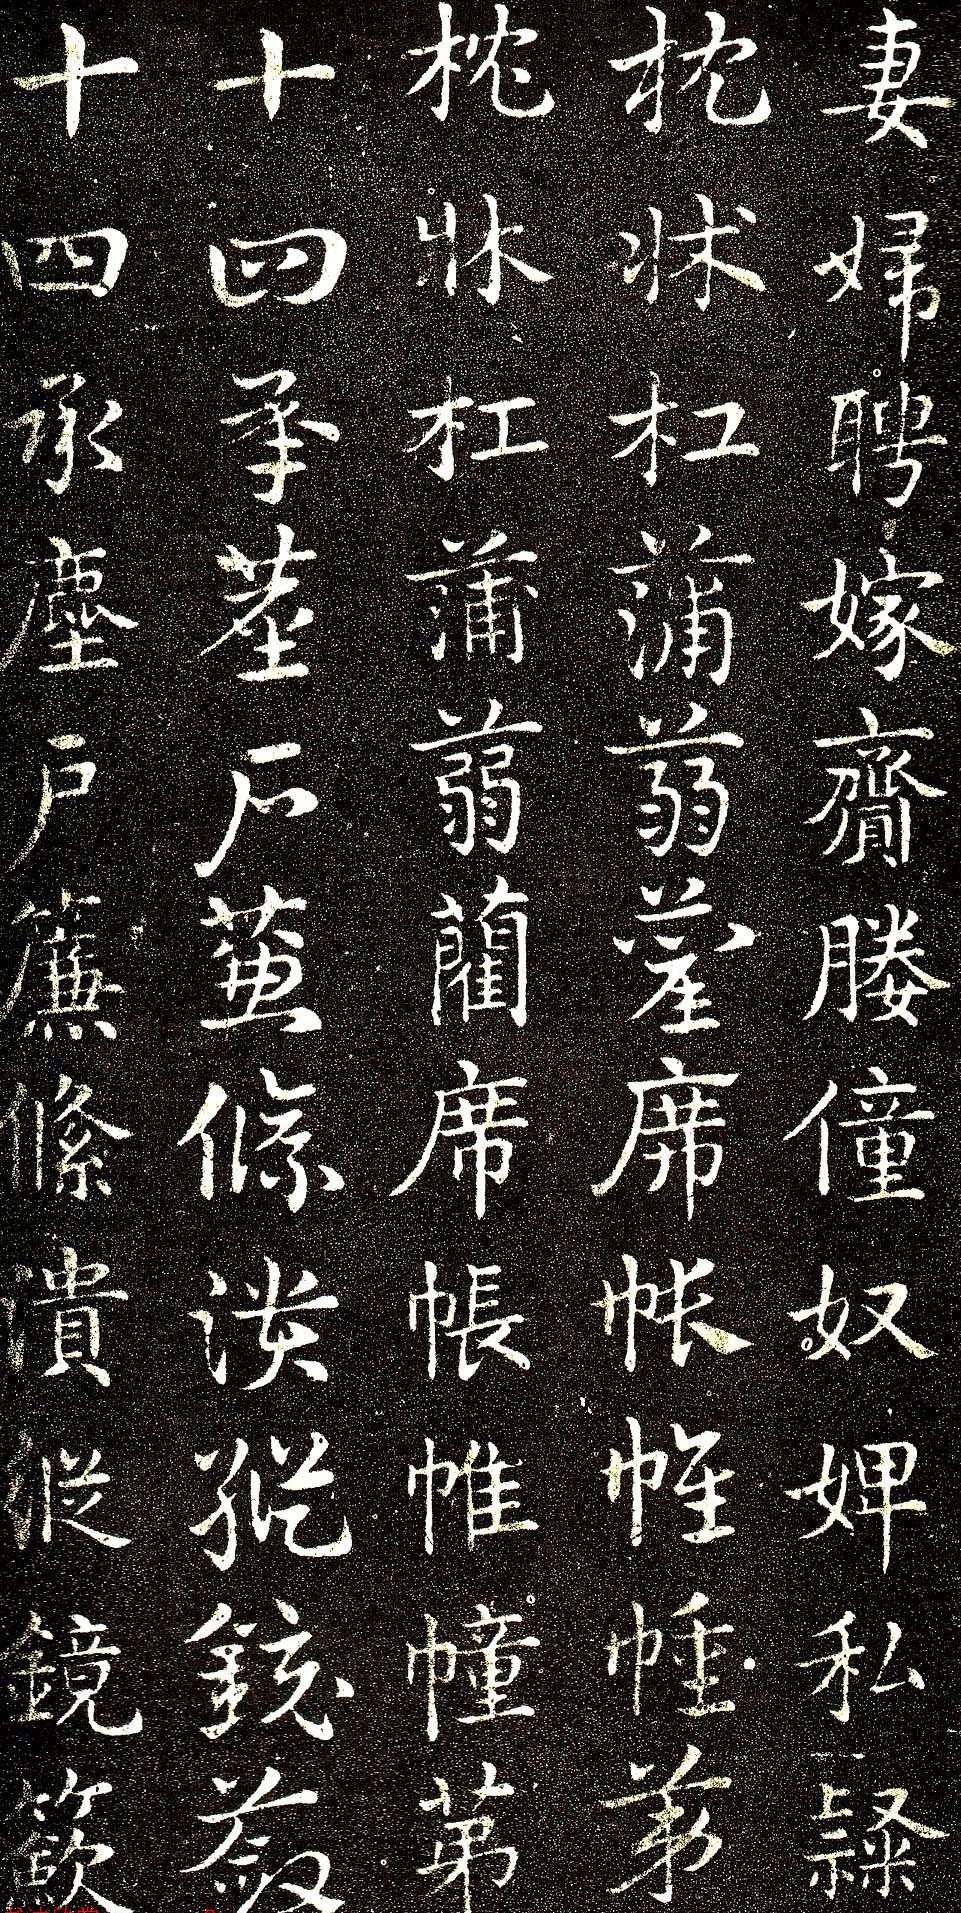 妻婦聘嫁齎媵僮奴婢私隸
枕牀杠蒲蒻藺席帳帷幢第
枕牀杠蒲蒻藺席帳帷幢第
十四承塵戶簾絛潰縱鏡籨
十四承塵戶簾絛潰縱鏡籨